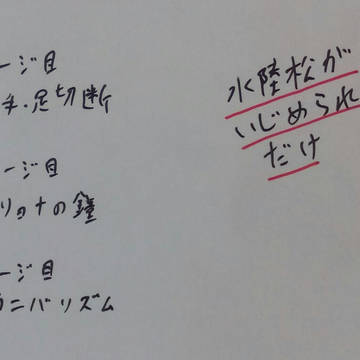 ージ目
手・足切断
ージ目
リョナの鐘
ージ目
カニバリズム
水陸松が
いじめられ
だけ